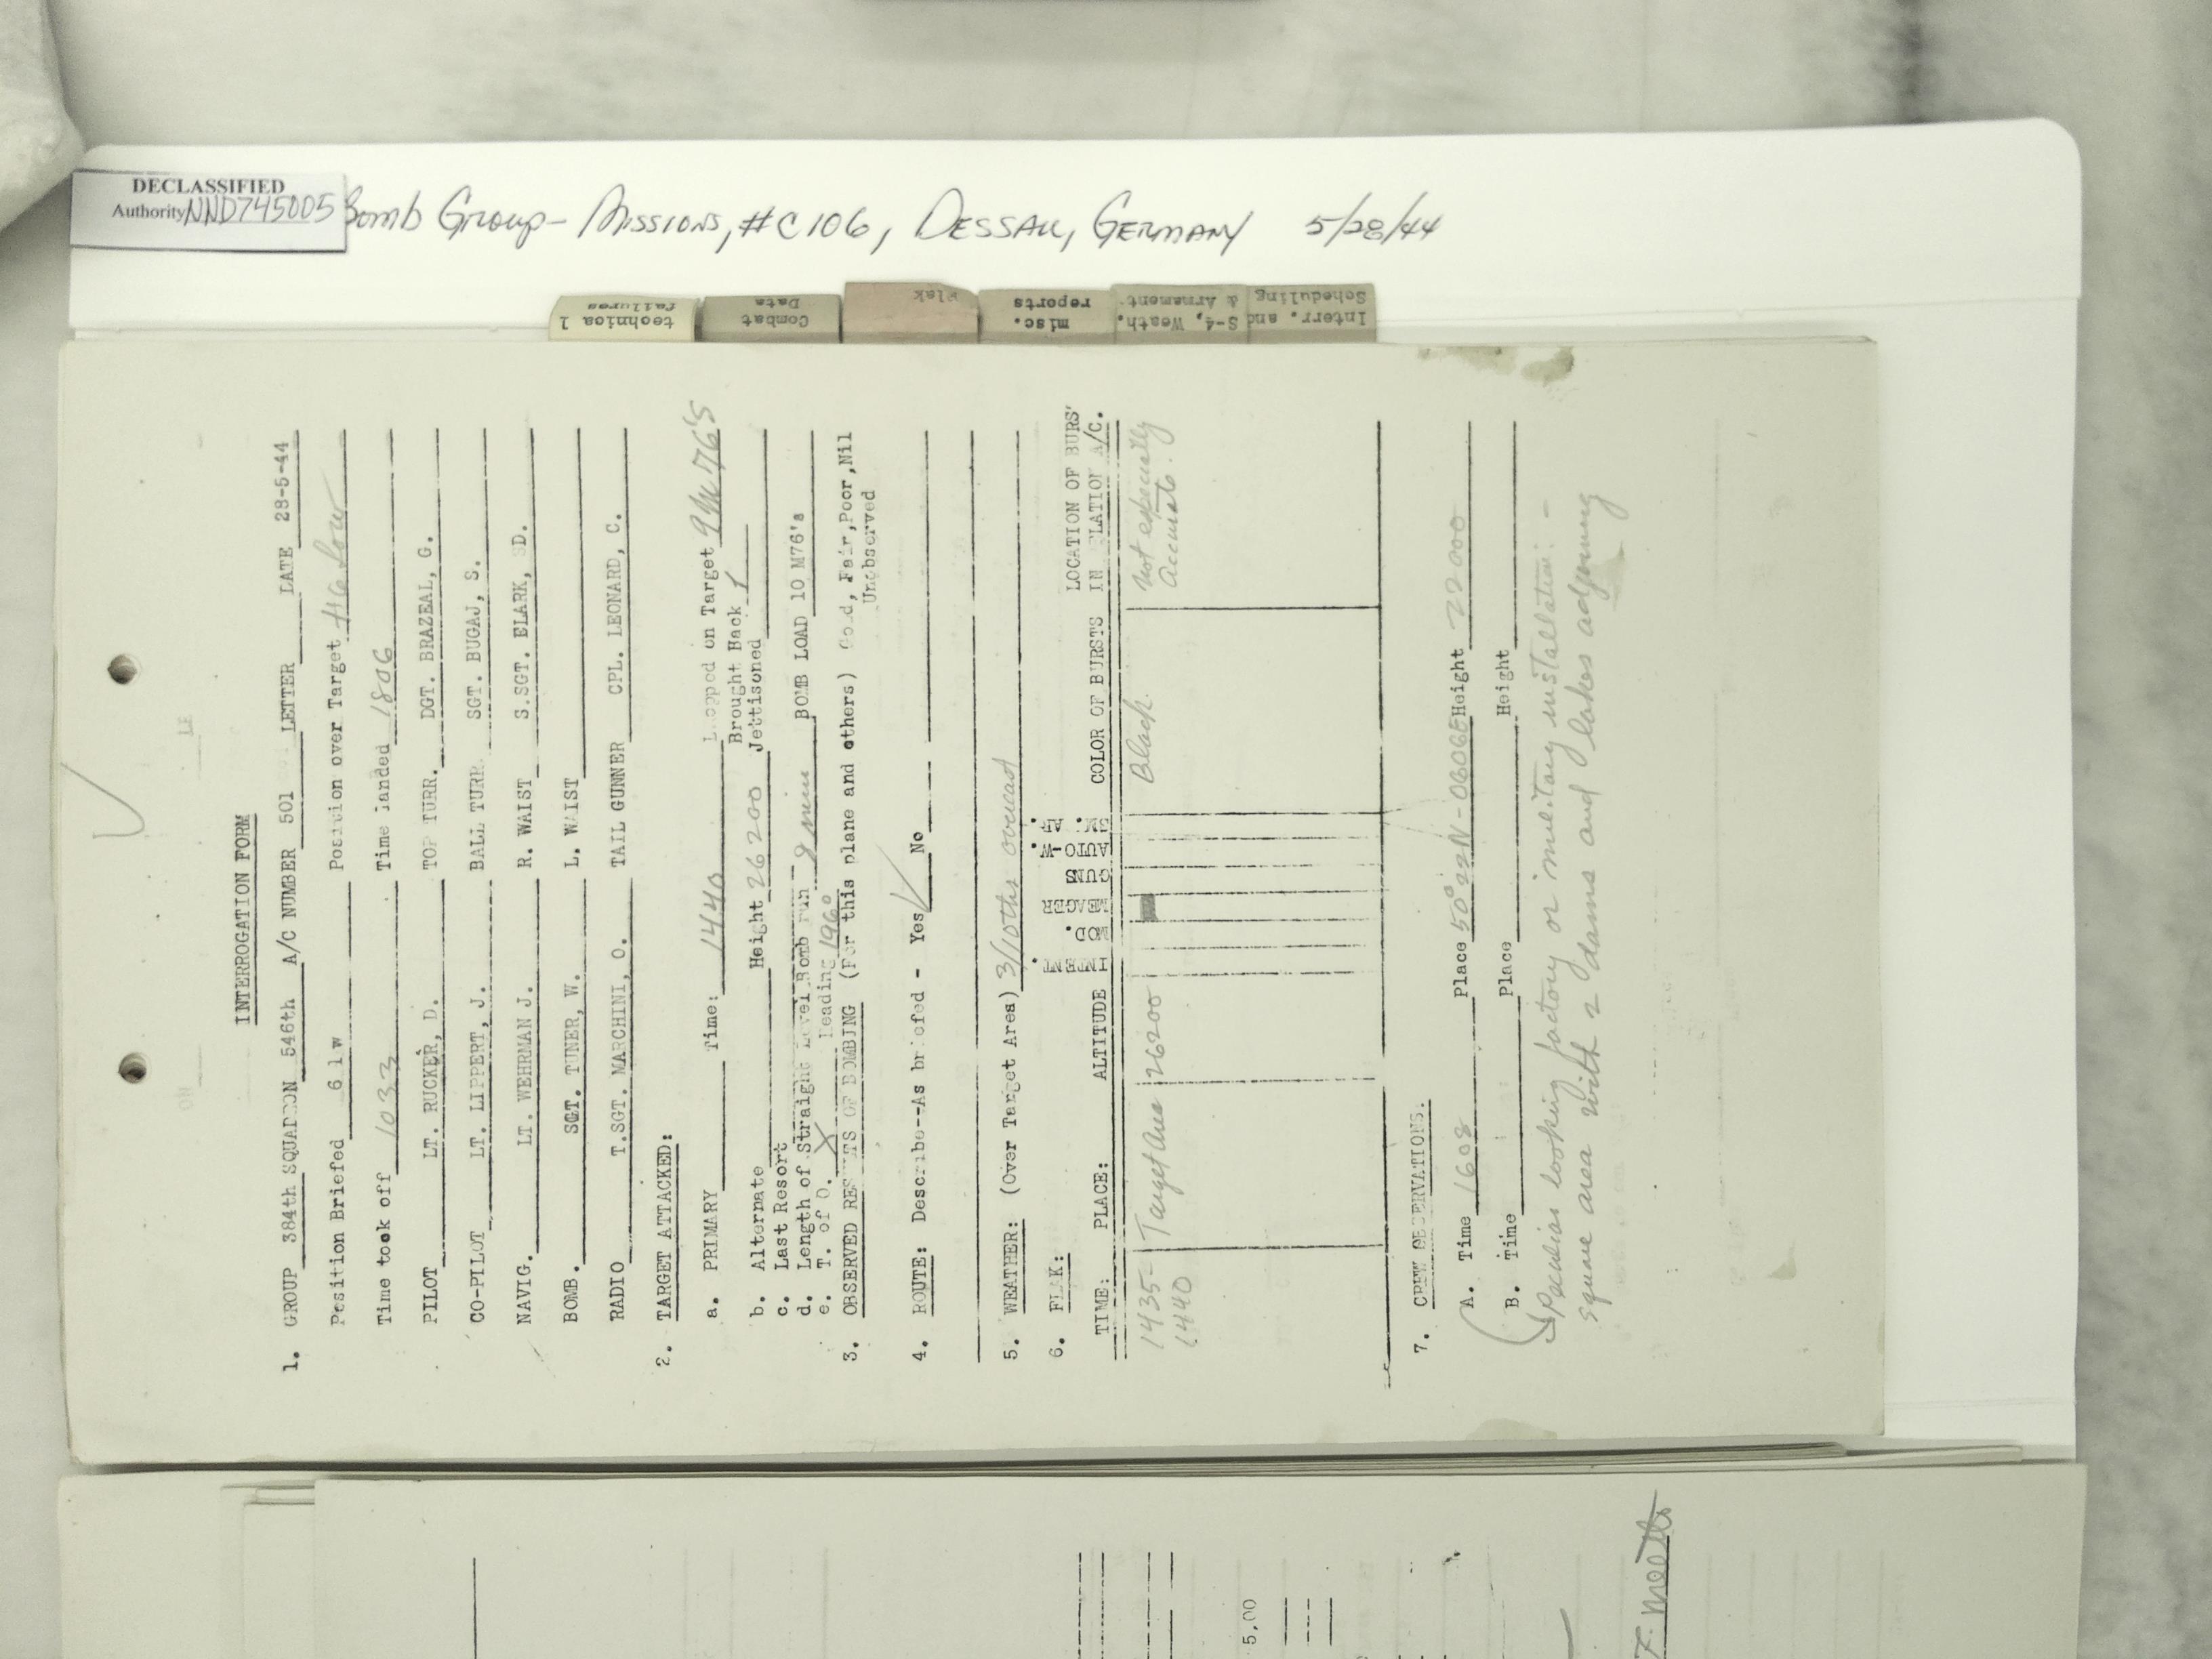 DECLASSIFIED
Authority NND745005
Bomb Group - Missions, #C106, DESSAU, GERMANY 5/28/44
technical failures
Combat Data
Flak
misc. reports
S-4, Weath. & Armament
Interr. and Scheduling
INTERROGATION FORM
1. GROUP 384th SQUADRON 546th A/C NUMBER 501 LETTER LATE 28-5-44
Position Briefed 6 l w Position over Target Low
Time took off 1033 Time landed 1806
PILOT LT. RUCKER, D. TOP TURR. DGT. BRAZEAL, G.
CO-PILOT LT. LIPPERT, J. BALL TURR. SGT. BUGAJ, S.
NAVIG. LT. WEHRMAN J. R. WAIST S.SGT. ELARK, D.
BOMB. SGT. TUNER, W. L. WAIST
RADIO T.SGT. MARCHINI, O. TAIL GUNNER CPL. LEONARD, C.
2. TARGET ATTACKED:
a. PRIMARY Time: 1440 Dropped on Target 9 M76's
Brought Back 1
b. Alternate Height 26200 Jettisoned
c. Last Resort
d. Length of Straight Level Bomb run min BOMB LOAD 10 M76's
e. T. of O. X Heading 196°
3. OBSERVED RESULTS OF BOMBING (For this plane and others) Good, Fair, Poor, Nil
Unobserved
4. ROUTE: Describe--As briefed - Yes ✓ No
5. WEATHER: (Over Target Area) 3/10ths overcast
6. FLAK:
LOCATION OF BURS'
TIME: PLACE: ALTITUDE INTENT. MOD. MEAGER GUNS AUTO-W. SM. AR. COLOR OF BURSTS IN RELATION A/C.
1435- Target Area 26200 Black Not especially
1440 Accurate.
7. CREW OBSERVATIONS.
A. Time 1608 Place 50°22N-0606E Height 22000
B. Time Place Height
Peculiar looking factory or military installation: -
square area with 2 dams and lakes adjoining
5.00